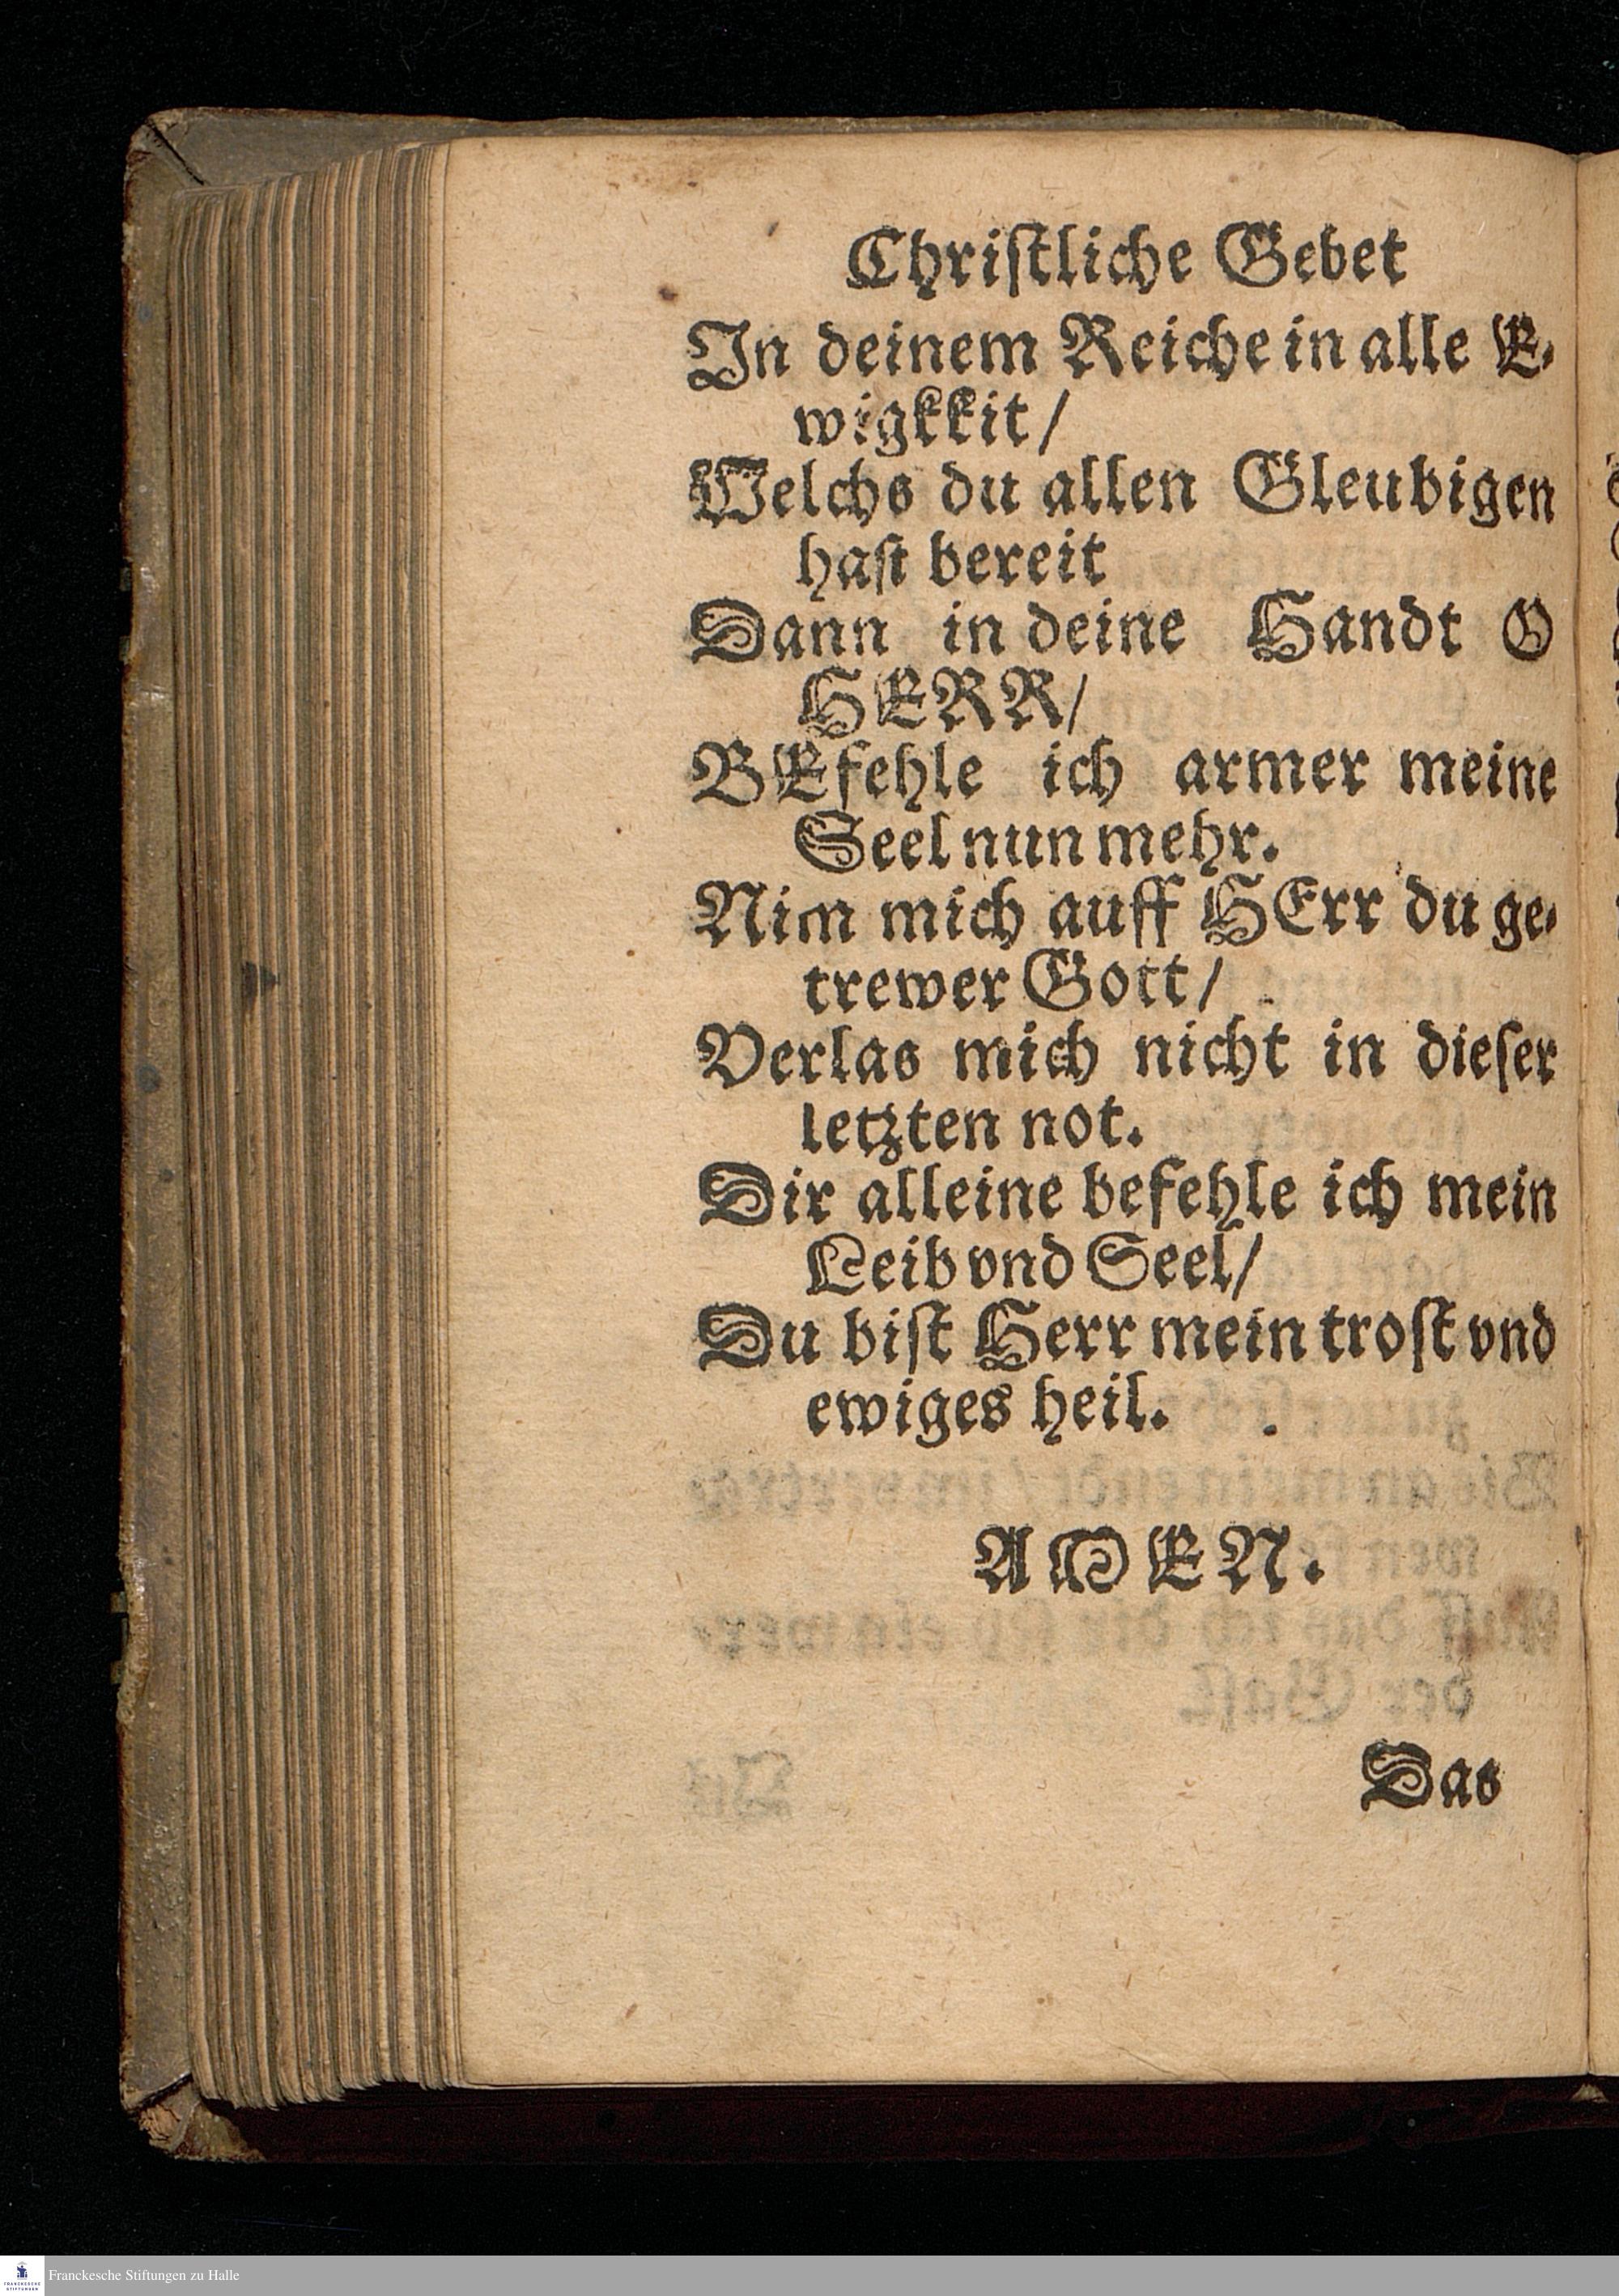 Christliche Gebet
In deinem Reiche in alle E-
wigkkit/
Welchs du allen Gleubigen
hast bereit
Dann in deine Handt O
HERR/
BEfehle ich armer meine
Seel nun mehr.
Nim mich auff HErr du ge-
trewer Gott/
Verlas mich nicht in dieser
letzten not.
Dir alleine befehle ich mein
Leib vnd Seel/
Du bist Herr mein trost vnd
ewiges heil.
AMEN.
Das
FRANCKESCHE
STIFTUNGEN
Franckesche Stiftungen zu Halle